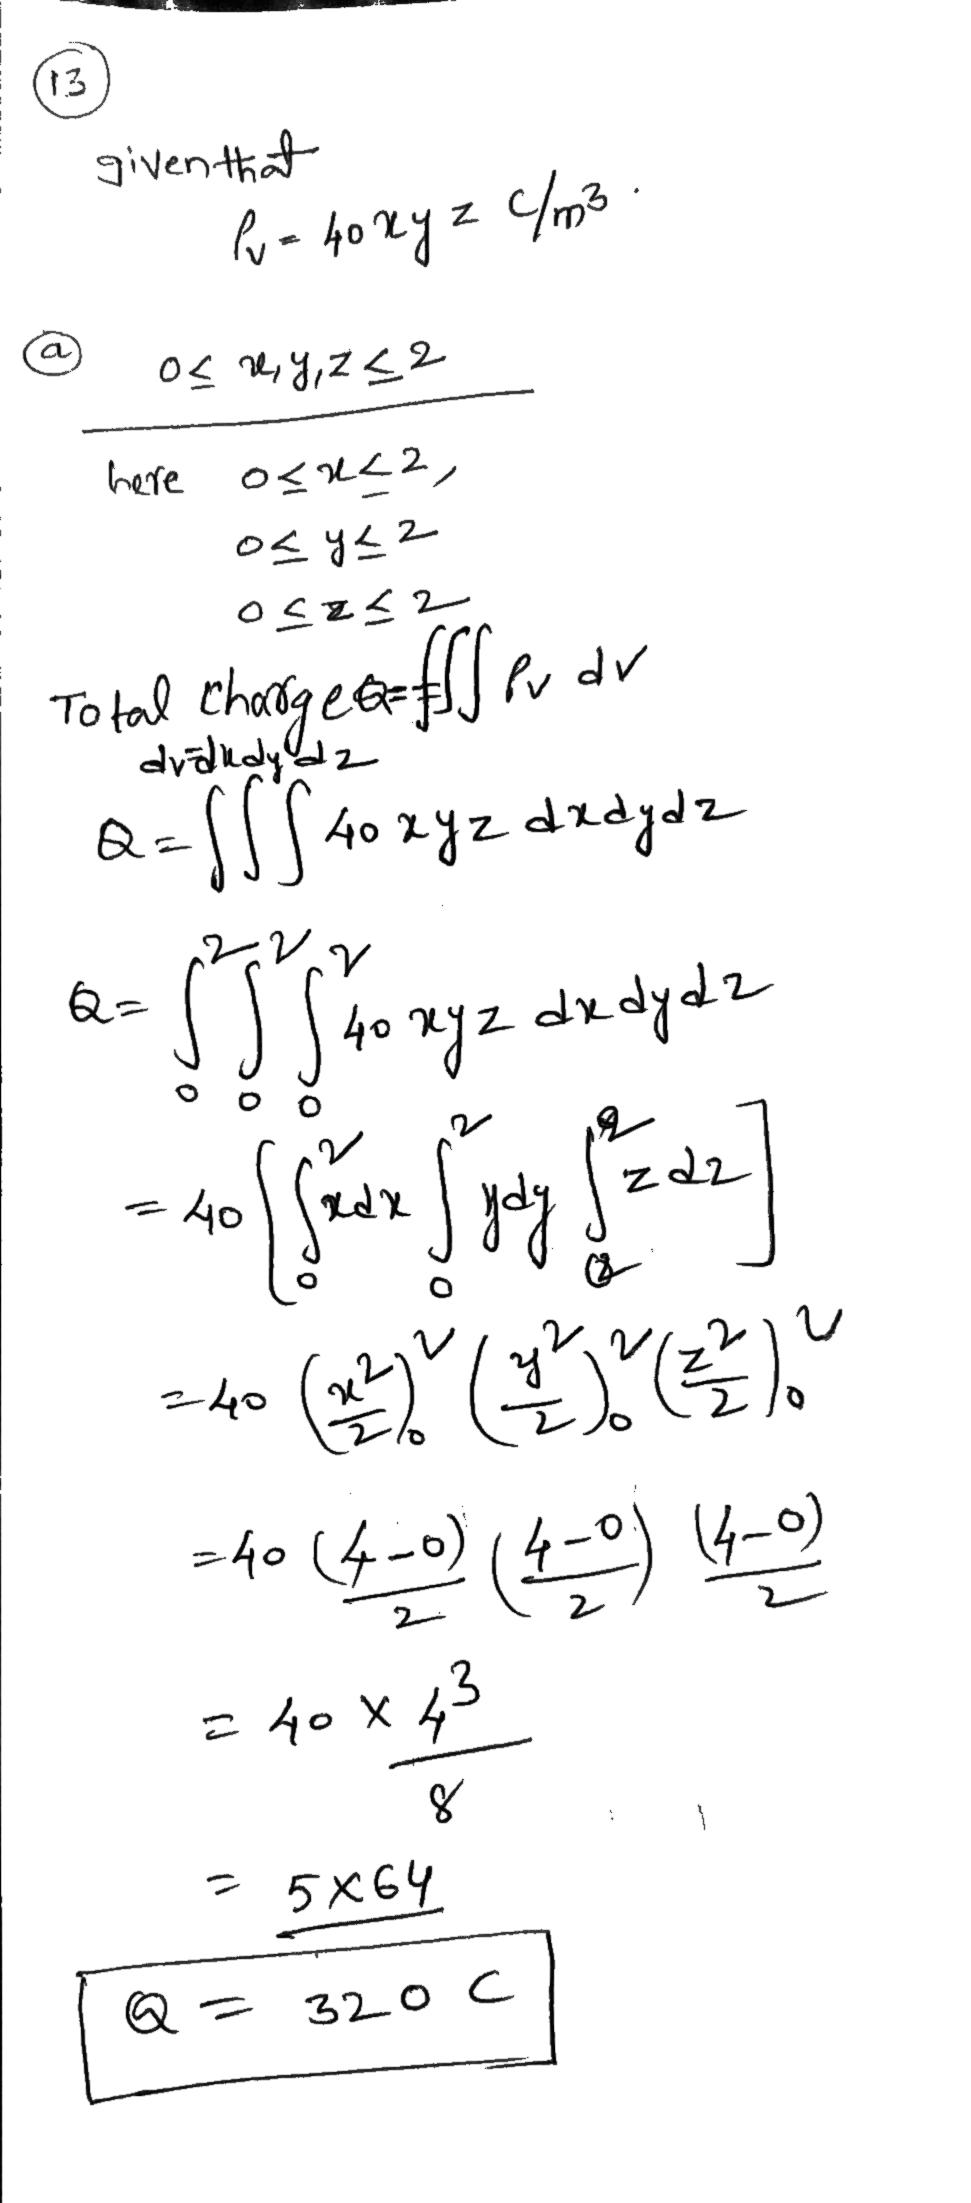 13
given that
ρv = 40xyz C/m³.
a 0 ≤ x, y, z ≤ 2
here 0 ≤ x ≤ 2,
0 ≤ y ≤ 2
0 ≤ z ≤ 2
Total charge Q = ∫∫∫ ρv dv
dv=dxdydz
Q = ∫∫∫ 40 xyz dxdydz
Q = ∫₀² ∫₀² ∫₀² 40 xyz dxdydz
= 40 [∫₀² xdx ∫₀² ydy ∫₀² zdz]
= 40 (x²/2)₀² (y²/2)₀² (z²/2)₀²
= 40 (4-0)/2 (4-0)/2 (4-0)/2
= 40 × 4³/8
= 5×64
Q = 320 C